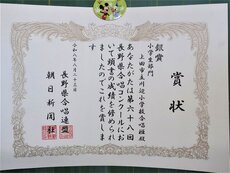 賞状
銀賞
小学生部門
上田市立川辺小学校合唱班殿
あなたがたは第六十八回
長野県合唱コンクールにお
いて頭書の成績を修められ
ましたのでこれを賞しま
す
長野県合唱連盟
朝日新聞社